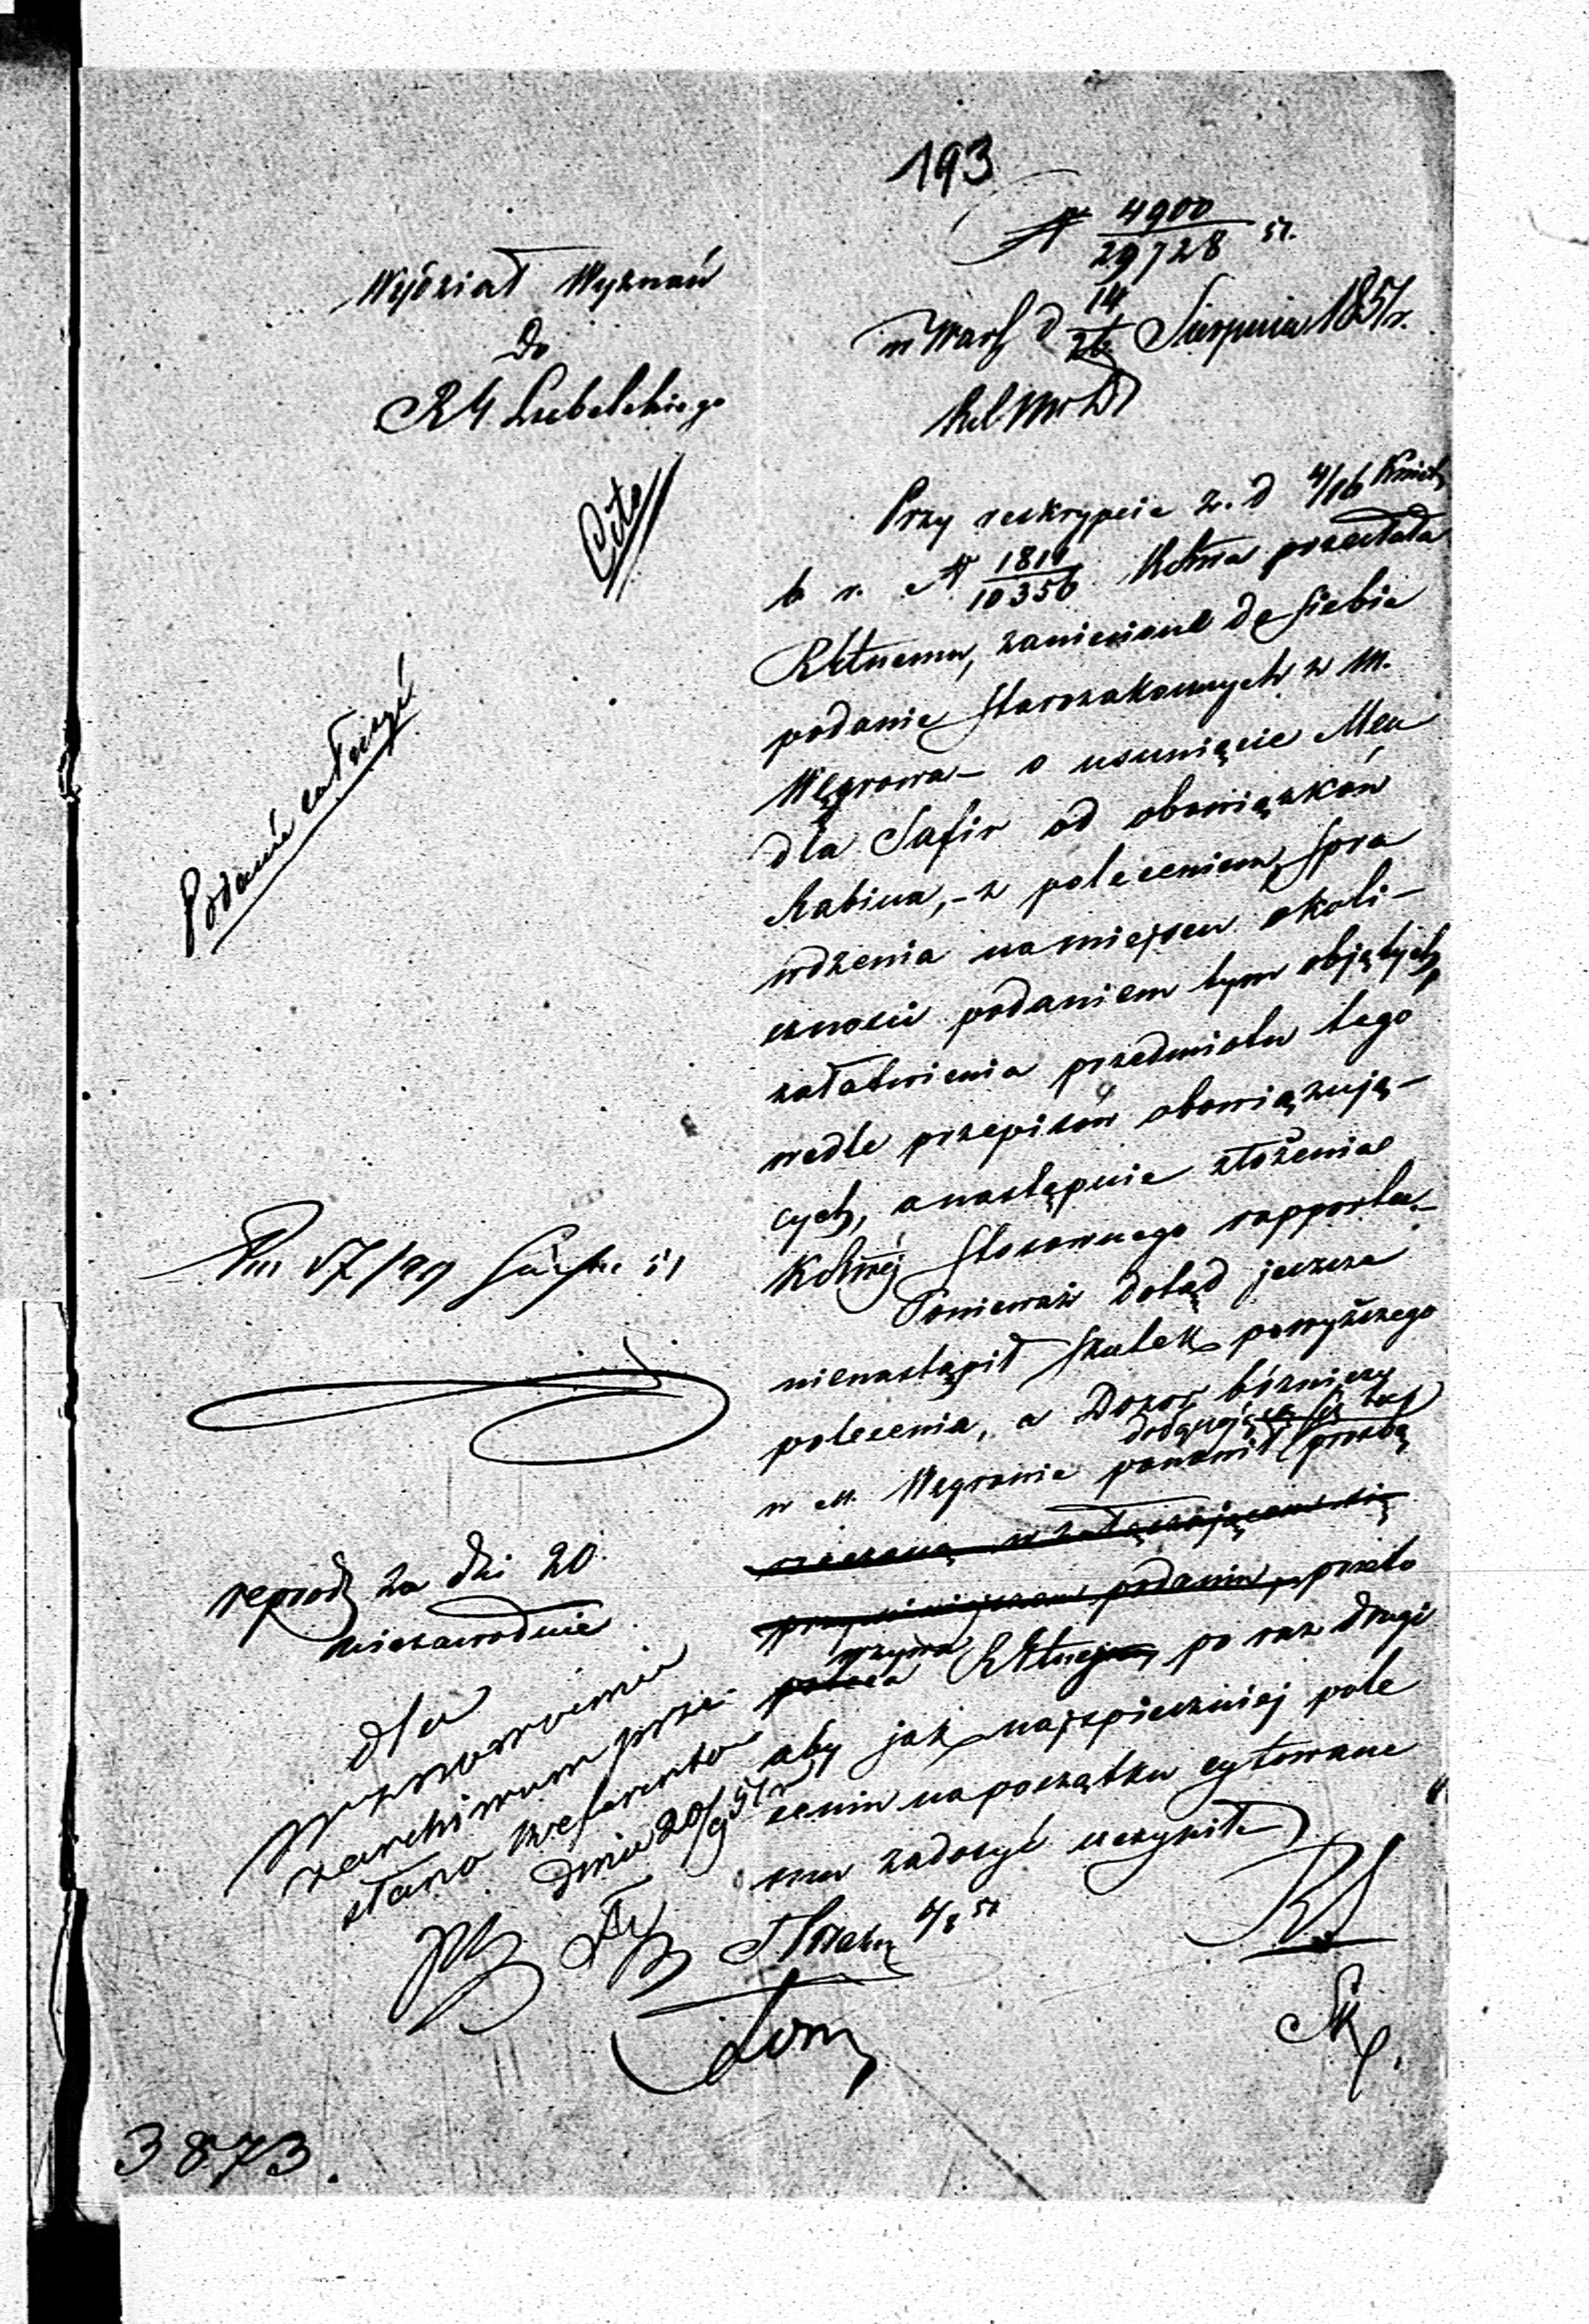 193
N 4900/29728 51.
Wydział Wyznań
Do
RG Lubelskiego
w Warsz d 14/26 Sierpnia 1851 r.
Cito
Przy reskrypcie z. d 4/16 Kwiet.
b r. N 1819/10356 Kssa przesłała
Rktnemu, zaniesione do siebie
podanie starozakonnych z m.
Węgrowa – o usunięcie Men
dla Safir od obowiązków
Rabina, – z poleceniem, spra
wdzenia na miejscu okoli–
czności podaniem tym objętych,
załatwienia przedmiotu tego
wedle przepisów obowiązują–
cych, a następnie złożenia
stosownego rapportu. –
Ponieważ dotąd jeszcze
nienastąpił skutek powyższego
polecenia, a Dozór bóżniczy
w m. Węgrowie ponowił prośbę
podaniu, przeto
wzywa
poleca po raz drugi
aby jak najspieszniej pole
ceniu na początku cytowane
mu zadosyć uczynił
Podanie załączyć
reprod za dni 20
niezawodnie
dla
wznowienia
z archiwum prze
stano referentowi
dnia 20/9 51 r
4/8 51
3873.